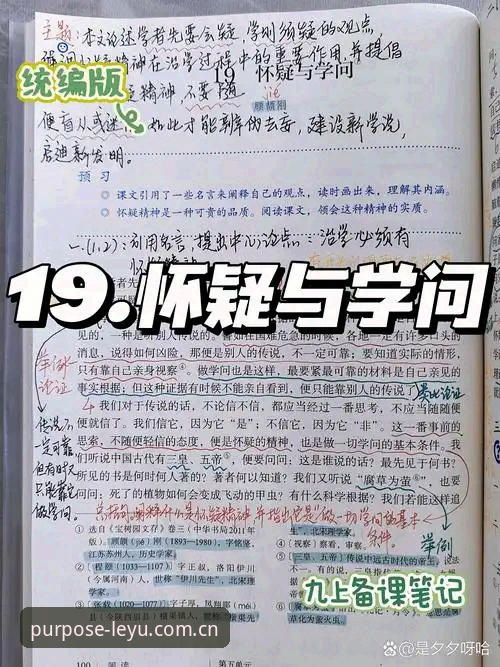 主题:本文论述学者先要会疑,学则须疑的观点,
精神在治学过程中的重要作用,并提倡
19 怀疑与学问
统编版
精神,不要随
jié
顾颉刚
便盲从或迷
如此才能辨伪去妄,建设新学说,
启迪新发明。
预习
◎ 课文引用了一些名言来阐释自己的观点,读时画出来,理解其内涵。
◎ 怀疑精神是一种可贵的品质。阅读课文,领会这种精神的实质。
一.(1,2):引用名言,提出中心论点:治学必须有
19.怀疑与学问
见的,一种是听别人传说的。譬如在国难危急的时候,各地一定有许多口头的
消息,说得如何凶险,那便是别人的传说,不一定可靠;要知道实际的情形,
只有靠自己亲身视察④。做学问也是这样,最要紧最可靠的材料是自己亲见的
事实根据;但这种证据有时候不能亲自看到,便只能靠别人的传说了。
举例论证
类比论证
我们对于传说的话,不论信不信,都应当经过一番思考,不应当随随便
便就信了。我们信它,因为它“是”;不信它,因为它“非”。这一番事前的
思索,不随便轻信的态度,便是怀疑的精神,也是做一切学问的基本条件。我
们听说中国古代有三皇、五帝⑤,便要问问:这是谁说的话?最先见于何书?
所见的书是何时何人著的?著者何以知道?我们又听说“腐草为萤⑥”,也要
问问:死了的植物如何会变成飞动的甲虫?有什么科学根据?我们若能这样追
传说不一定可靠
但有时又只能靠它
做学问。
总结句,阐释什么是怀疑精神,并指出他是“做一切学问的基本
条件。
举例
① 选自《宝树园文存》卷三(中华书局2011年
版)。顾颉(jié)刚(1893—1980),字铭坚,
江苏苏州人,历史学家。
②〔程颐(1033—1107)〕字正叔,洛阳伊川
(今属河南)人,世称“伊川先生”,北宋理
学家。
③〔张载(1020—1077)〕字子厚,凤翔郿(méi)
县(今陕西眉县)横渠镇人,世称“横渠先
生”,北宋理学家。
④〔视察〕察看,审察。
⑤〔三皇、五帝〕传说中远古时代的帝王。说法
九上备课笔记
草化为萤火虫。
purpose-leyu.com.cn
100 阅读
第五单元
@是夕夕呀哈